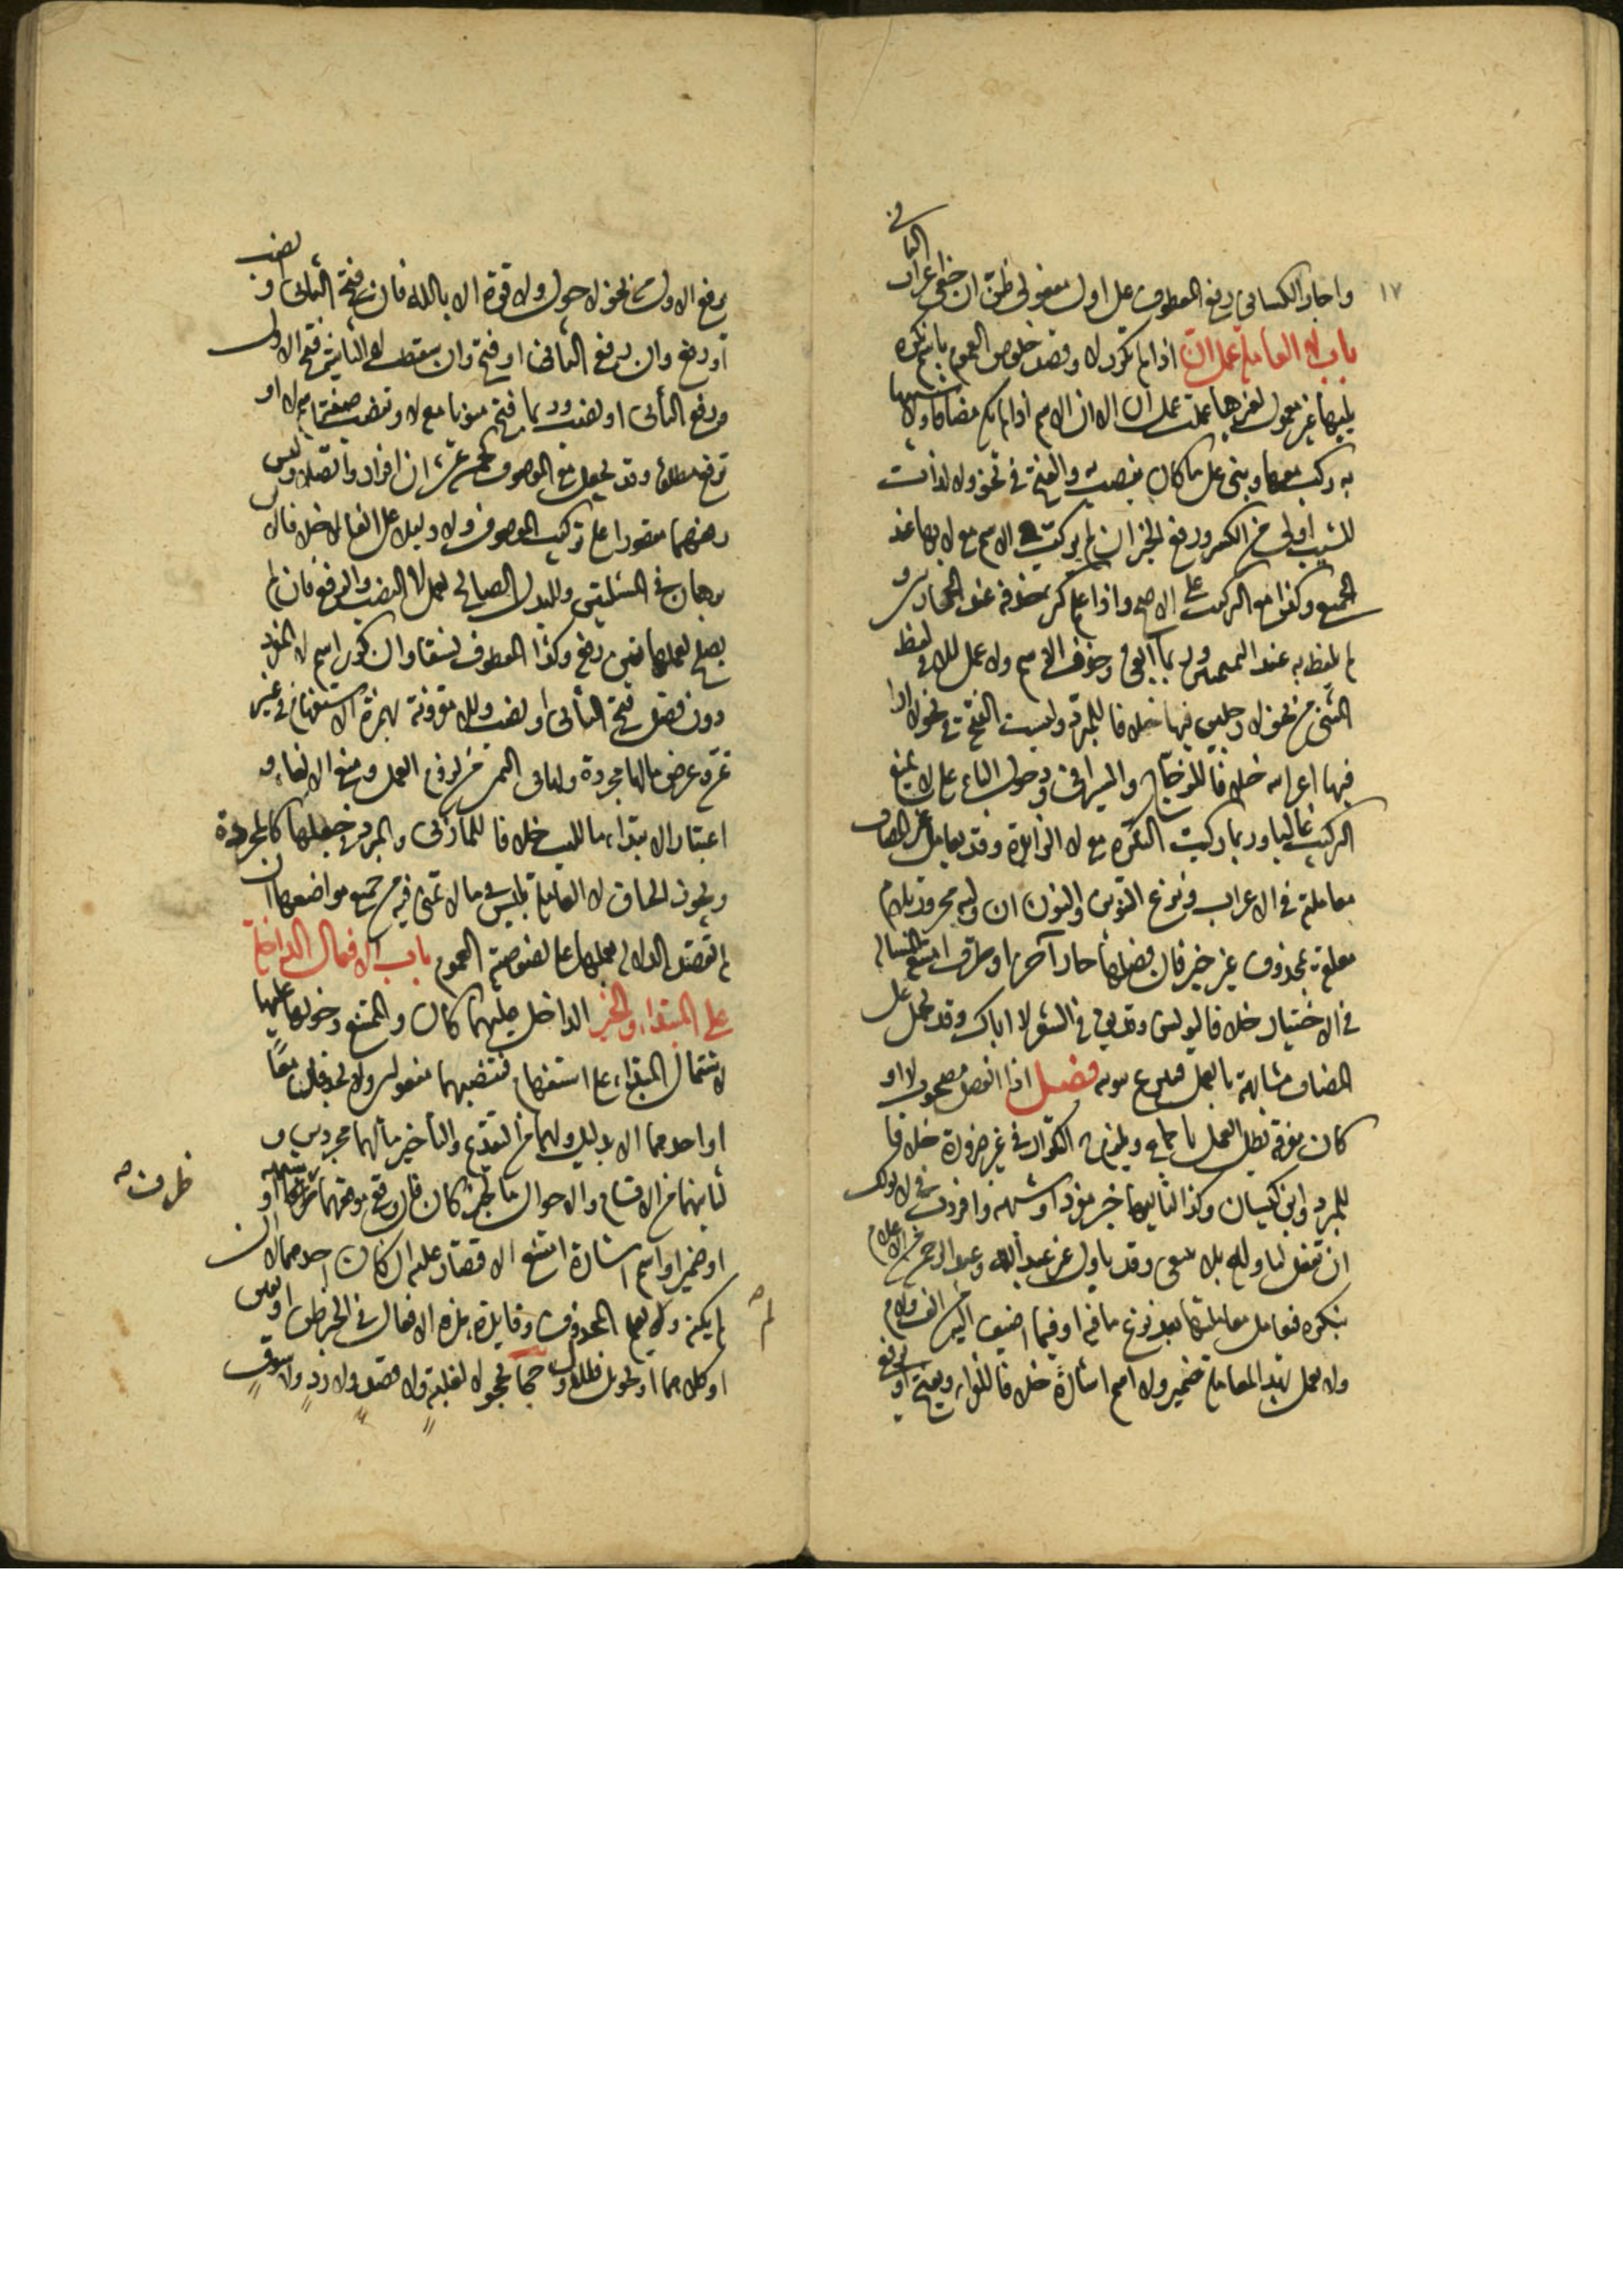 ١٧
واجاز الكسائى رفع المعطوف على اول مفعولى ظن ان خفى اعراب الثانى
باب لا العاملة عمل ان اذا لم تكرر لا وقصد خلوص العموم باسم نكرة
يليها غير معمول لغيرها عملت عمل ان الا ان الاسم اذا لم يكن مضافا ولا شبيها
به ركب معها وبنى على ما كان ينصب به والفتح فى نحو ولا لذات
للشيب اولى من الكسر ورفع الخبر ان لم يركب الاسم مع لا بها عند
الجميع وكذا مع التركيب على الاصح واذا علم كثر حذفه عند الحجازيين و
لم يلفظ به عند التميميين وربما ابقى وحذف الاسم ولا عمل للا فى لفظ
المثنى من نحو لا رجلين فيها خلافا للمبرد وليست الفتحة فى نحو لا احد
فيها اعرابية خلافا للزجاج والسيرافى ودخول الباء على لا يمنع
التركيب غالبا وربما ركبت النكرة مع لا الزايدة وقد يعامل غير المضاف
معاملته فى الاعراب ونزع التنوين والنون ان وليه مجرور بلام
معلقة بمحذوف غير خبر فان فصلها جار آخر او ظرف امتنع المسألة
فى الاختيار خلافا ليونس وقد يقال فى الشعر لا اباك وقد يحمل على
المضاف مشابهه بالعمل فينزع تنوينه فصل اذا انفصل مصحوب لا او
كان معرفة بطل العمل باجماع ويلزم التكرار فى غير ضرورة خلافا
للمبرد وابن كيسان وكذا التاليها خبر مفرد او شبهه وافردت فى لا نولك
ان تفعل لتأوله بلا ينبغى وقد يأول غير عبد الله وعبد الرحمن من الاعلام
بنكرة فيعامل معاملتها بعد نزع ما فيه او فيما اضيف اليه من الف ولام
ولا يعمل بهذه المعاملة ضمير ولا اسم اشارة خلافا للفراء ويفتح او يرفع
يرفع الاول من نحو لا حول ولا قوة الا بالله فان فتح فتح الثانى او نصب
او رفع وان رفع رفع الثانى او فتح وان سقطت لا الثانية فتح الاول
ورفع الثانى او نصب وربما فتح منويا معه لا وتنصب صفة اسم لا او
ترفع مطلقا وقد تجعل مع الموصوف كخمسة عشر ان افردا واتصلا وليس
رفعها مقصورا على تركيب الموصوف ولا دليلا على الغاء لا خلافا لابن
برهان فى المسئلتين وللبدل الصالح لعمل لا النصب والرفع فان لم
يصلح لعملها تعين رفعه وكذا المعطوف نسقا وان كرر اسم لا المفرد
دون فصل فتح الثانى او نصب وللا مقرونة بهمزة الاستفهام فى غير
تمن وعرض ما لها مجردة ولها فى التمنى من لزوم العمل ومنع الالغاء و
اعتبار الابتداء ما لليت خلافا للمازنى والمبرد فى جعلها كالمجردة
ويجوز الحاق لا العاملة بليس فيما لا تمنى فيه من جميع مواضعها ان
لم تقصد الدلالة بعملها على نصوصية العموم باب الافعال الداخلة
على المبتداء والخبر الداخل عليهما كان والممتنع دخولها عليهما
لاشتمال المبتداء على استفهام فتنصبهما مفعولين ولا يحذفان معا
او احدهما الا بدليل ولهما من التقديم والتأخير ما لهما مجردين و
لثانيهما من الاقسام والاحوال ما لخبر كان فان وقع موقعهما ظرف او شبهه او
ظرف صح
او ضمير او اسم اشارة امتنع الاقتصار عليه ان كان احدهما لا ان
لم صح
لم يكنه ولم يعلم المحذوف وفايدة هذه الافعال فى الخبر ظن او يقين
او كلاهما او تحويل فللاول حجا يحجو لا لغلبة ولا قصد ولا رد ولا سوق